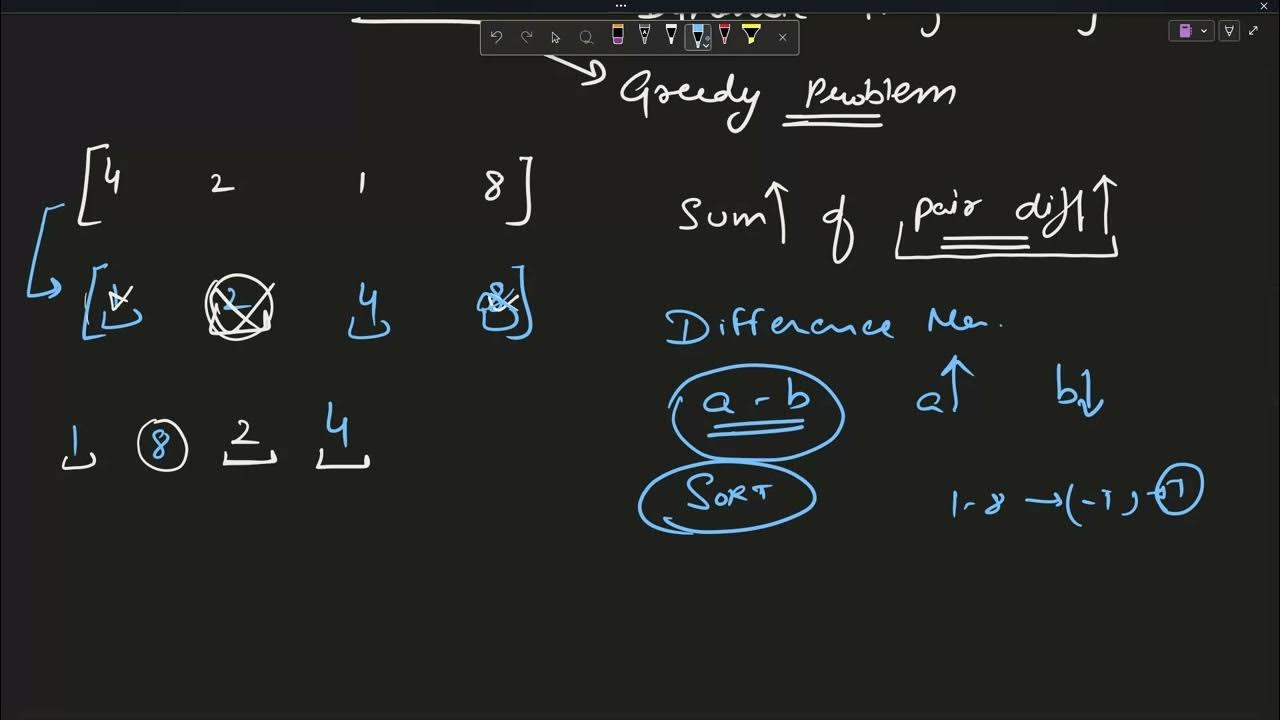 Greedy Problem
[4 2 1 8]
Sum↑ of pair diff↑
[1 2 4 8]
Difference
a - b a↑ b↓
1 8 2 4
SORT
1-8 →(-7) →7